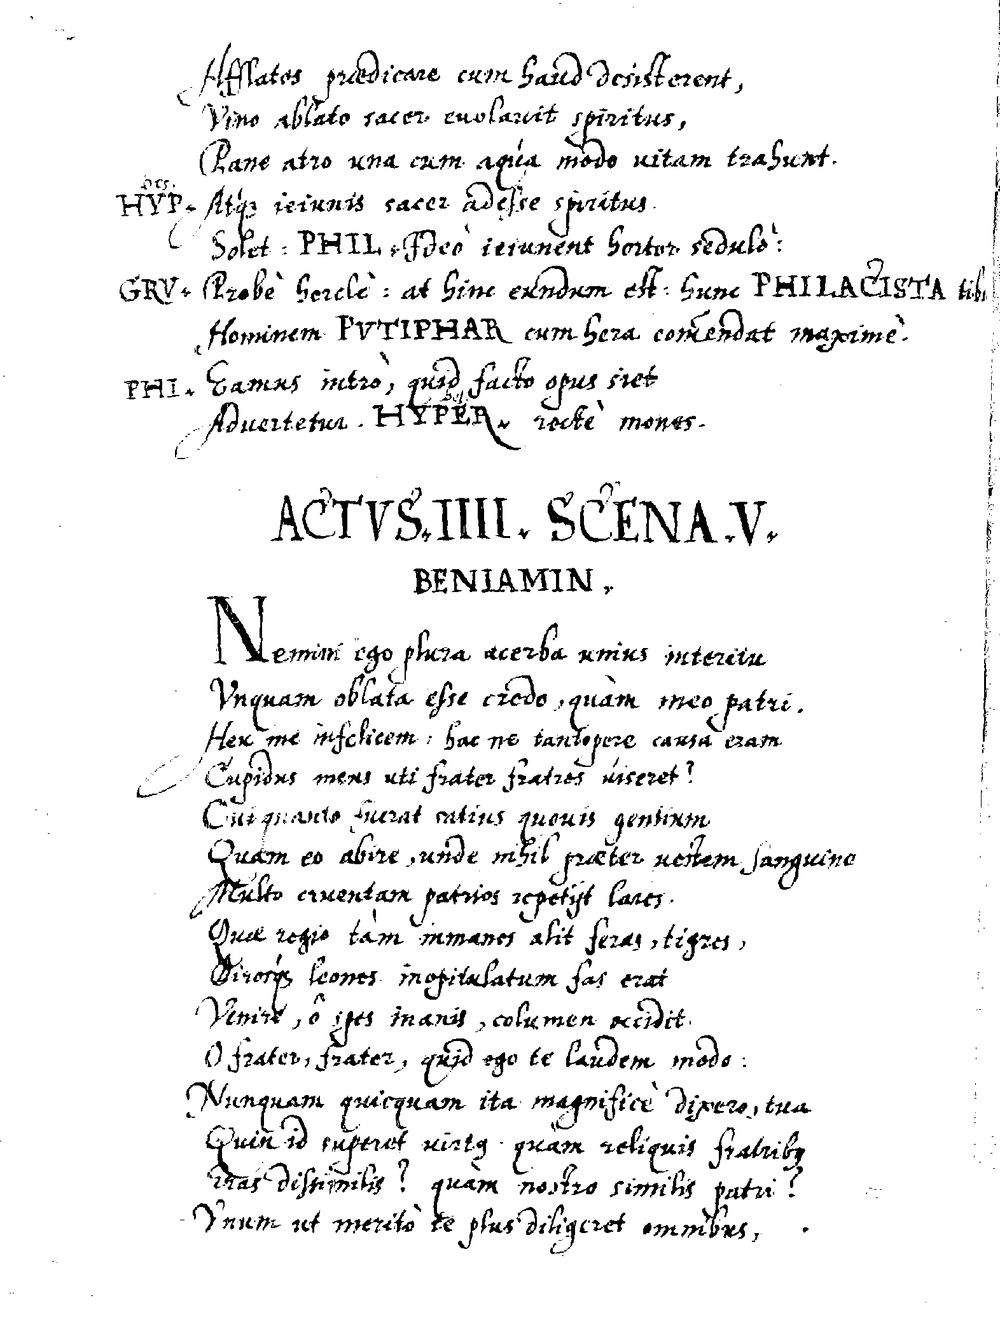 Afflatos prædicare cum haud desisterent,
Vino ablato sacer euolauit spiritus,
Pane atro una cum aqua modo uitam trahunt.
HYP. Atq; ieiunis sacer adesse spiritus
Solet: PHIL. Ideò ieiunent hortor sedulò:
GRV. Probè herclè: at hinc eundum est: hunc PHILACISTA tibi
Hominem PVTIPHAR cum hera comendat maximè.
PHI. Eamus intrò, quid facto opus siet
Aduertetur. HYPER. rectè mones.
ACTVS. IIII. SCENA. V.
BENIAMIN.
Nemini ego plura acerba unius interitu
Vnquam oblata esse credo, quàm meo patri.
Heu me infelicem: hac ne tantopere causa eram
Cupidus meus uti frater fratres uiseret?
Cui quanto fuerat satius quouis gentium
Quam eo abire, unde nihil præter uestem sanguine
Multo cruentam patrios repetijt lares.
Quæ regio tàm immanes alit feras, tigres,
Dirosq; leones inopitulatum fas erat
Venire, ô spes inanis, columen occidit.
O frater, frater, quid ego te laudem modo:
Nunquam quicquam ita magnificè dixero, tua
Quin id superet uirtus quàm reliquis fratribus
dissimilis? quàm nostro similis patri?
Vnum ut meritò te plus diligeret omnibus,